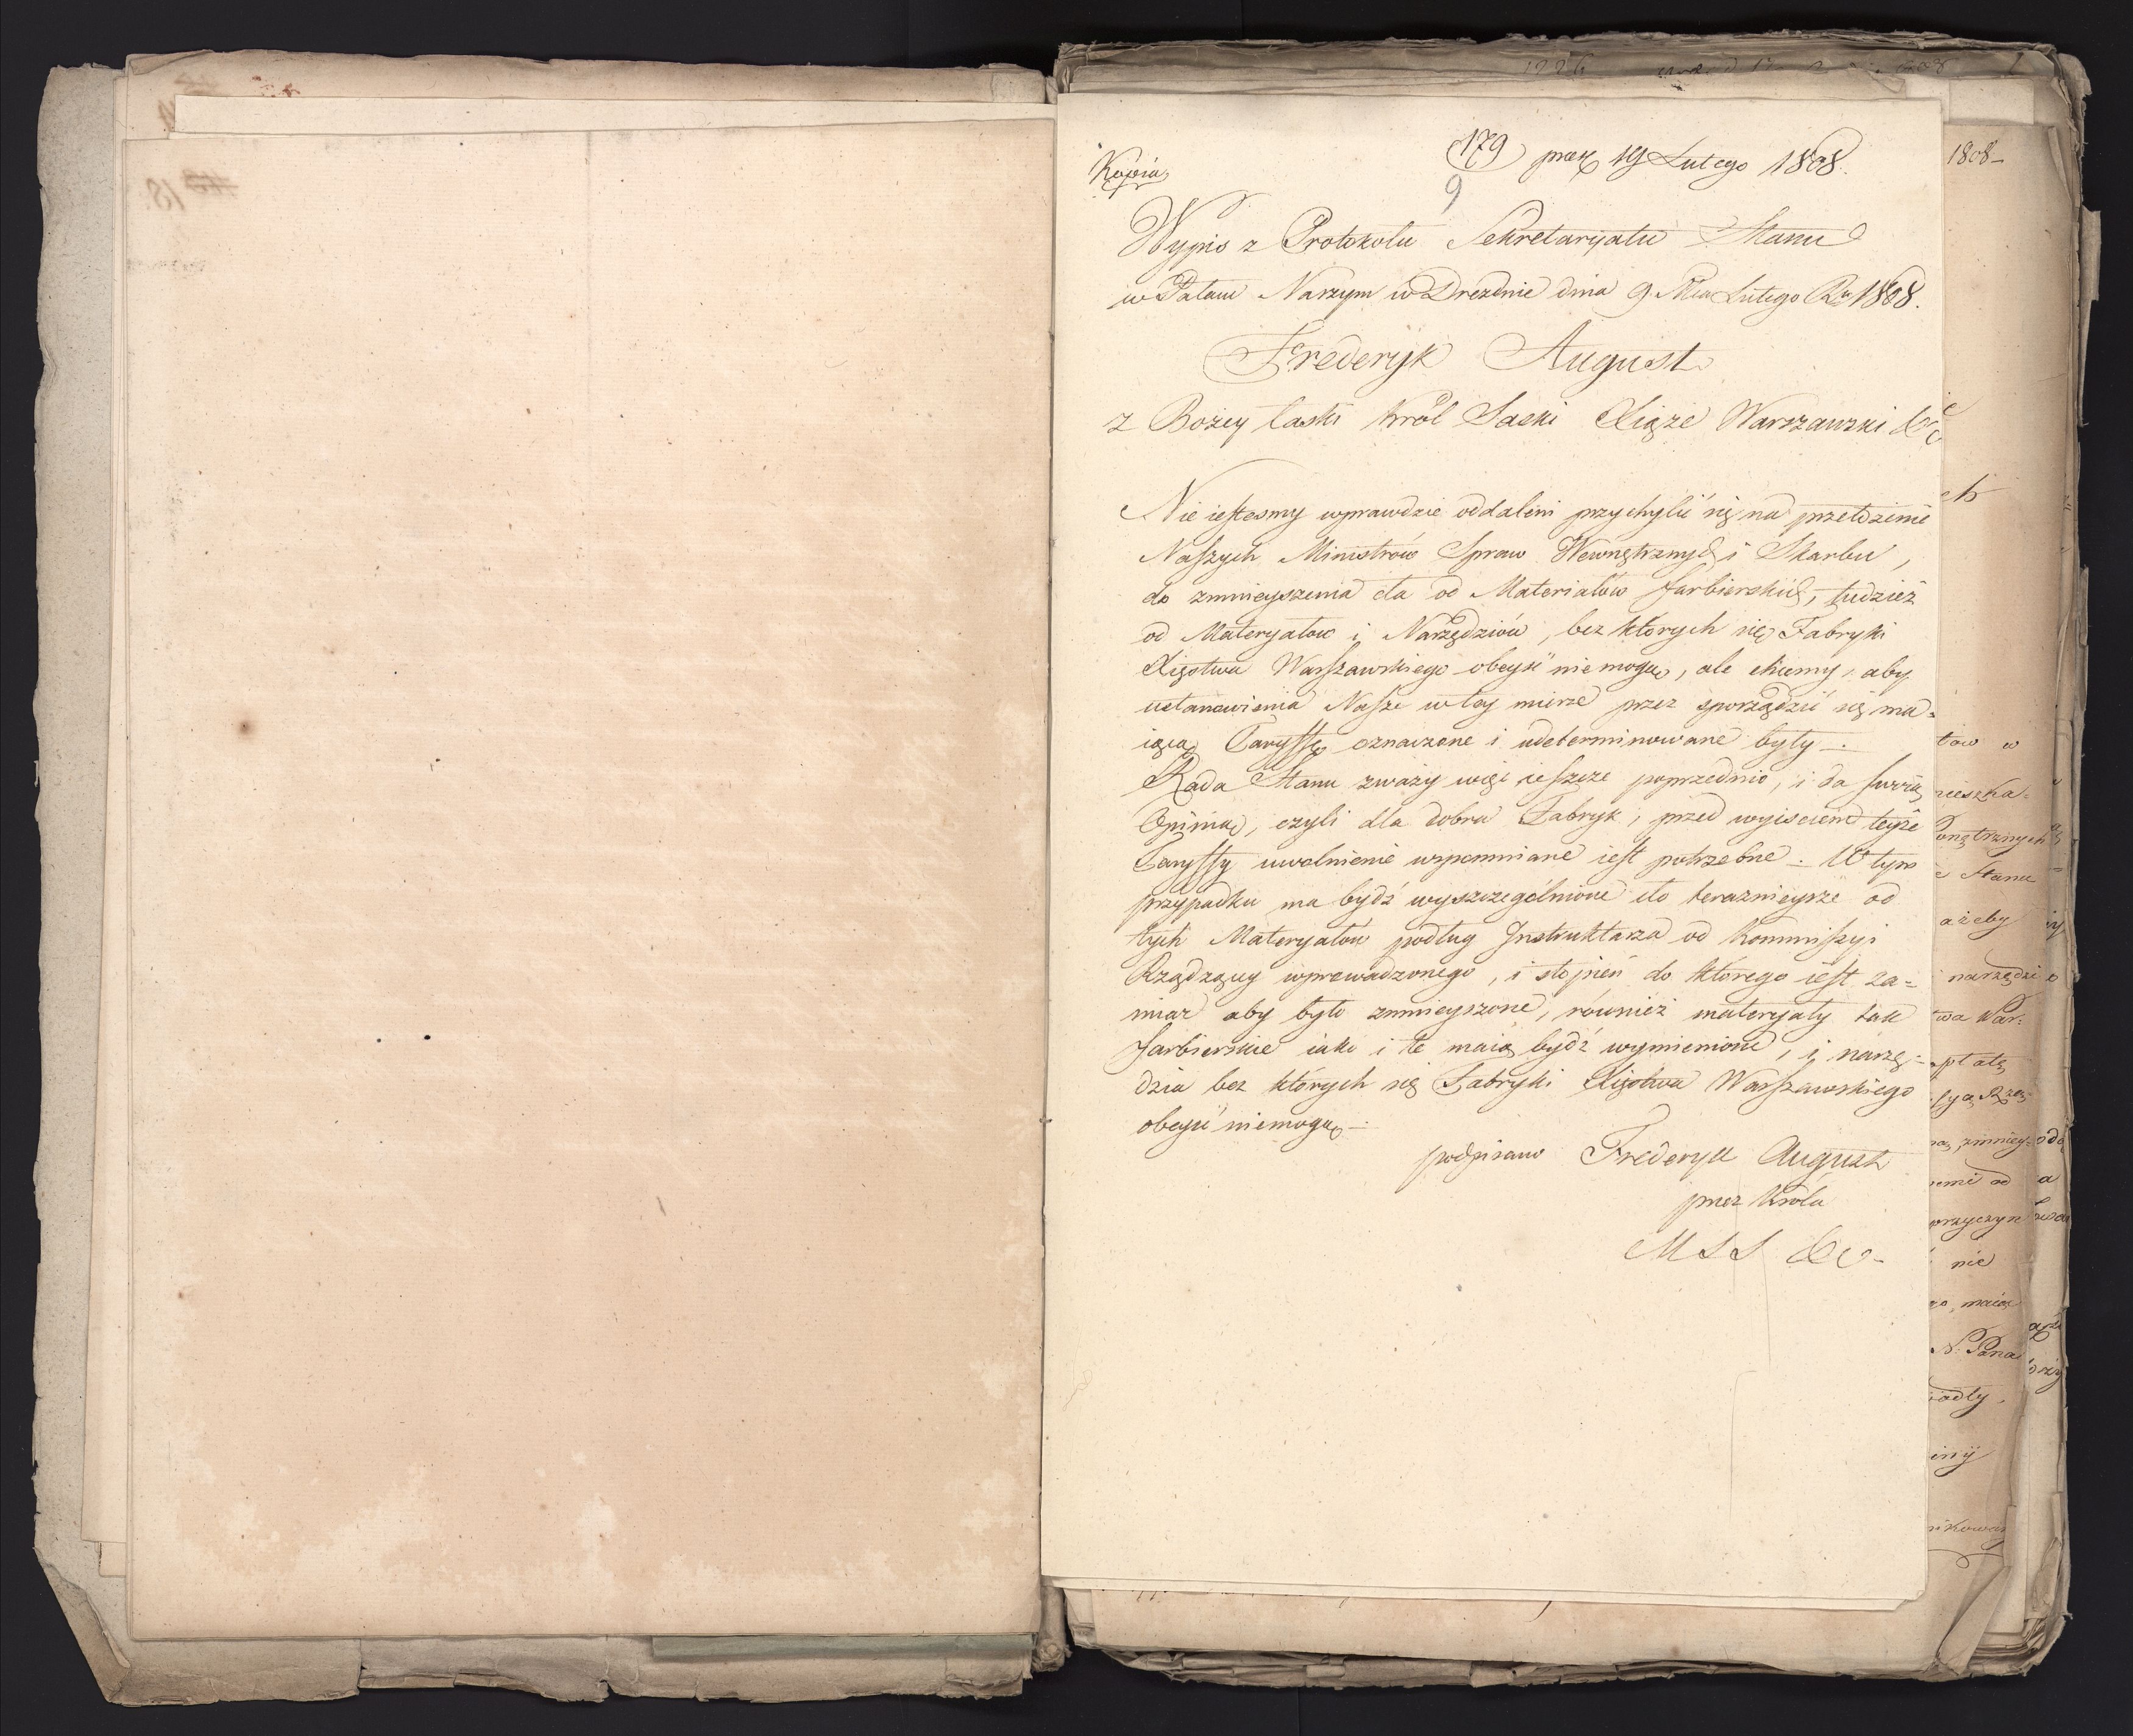 Kopia
179 prez 19 Lutego 1808.
9
Wypis z Protokolu Sekretaryatu Stanu
w Pałacu Naszym w Dreznie dnia 9 Mca Lutego Rku 1808.
Frederyk August
z Bożey łaski Król Saski Xiąże Warszawski &c
Nie iestesmy wprawdzie oddaleni przychylić się na przełożenie
Naszych Ministrów Spraw Wewnętrznych i Skarbu,
do zmnieyszenia cła od Materiałów farbierskich, tudzież
od Materyałow i Narzędziów, bez których się Fabryki
Xięstwa Warszawskiego obeyść niemogą, ale chcemy, aby
ustanowienia Nasze w tey mierze przez sporządzić się ma-
iącą Taryffę oznaczone i udeterminowane były.
Rada Stanu zważy więc ieszcze poprzednio, i da swoią
Opinią, czyli dla dobra Fabryk, przed wyisciem teyże
Taryffy uwolnienie wspomniane iest potrzebne. W tym
przypadku ma bydź wyszczegolnione cło teraznieysze od
tych Materyałow podług Instruktarza od Kommissyi
Rządzącey wprowadzonego, i stopień do którego iest za-
miar aby było zmnieyszone, również materyały tak
farbierskie iako i te maią bydź wymienione, i narzę-
dzia bez których się Fabryki Xięstwa Warszawskiego
obeyść niemogą.
podpisano Frederyk August
przez Króla
M S S &c
1808
tow w
nieszka-
wnętrznych
Stanu
ażeby
narzędzi
twa War:
opłatę
zmniey
od
przyczyn
nie
maią
N. Pana